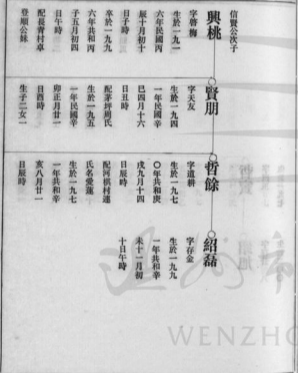 信賢公次子
興桃
字啓梅
生於一九一
六年民國丙
辰十月初十
日子時
卒於一九九
六年共和丙
子五月初四
日午時
配長青村卓
登順公妹
賢朋
字天友
生於一九四
一年民國辛
巳四月十六
日丑時
配茅坪周氏
生於一九五
一年共和辛
卯正月廿一
日酉時
生子二女一
哲餘
字道耕
生於一九七
〇年共和庚
戌九月十四
日辰時
配河棋村連
氏名愛蓮
生於一九七
一年共和辛
亥八月廿一
日辰時
紹磊
字存金
生於一九九
一年共和辛
未十一月初
十日午時
溫州市
WENZHO